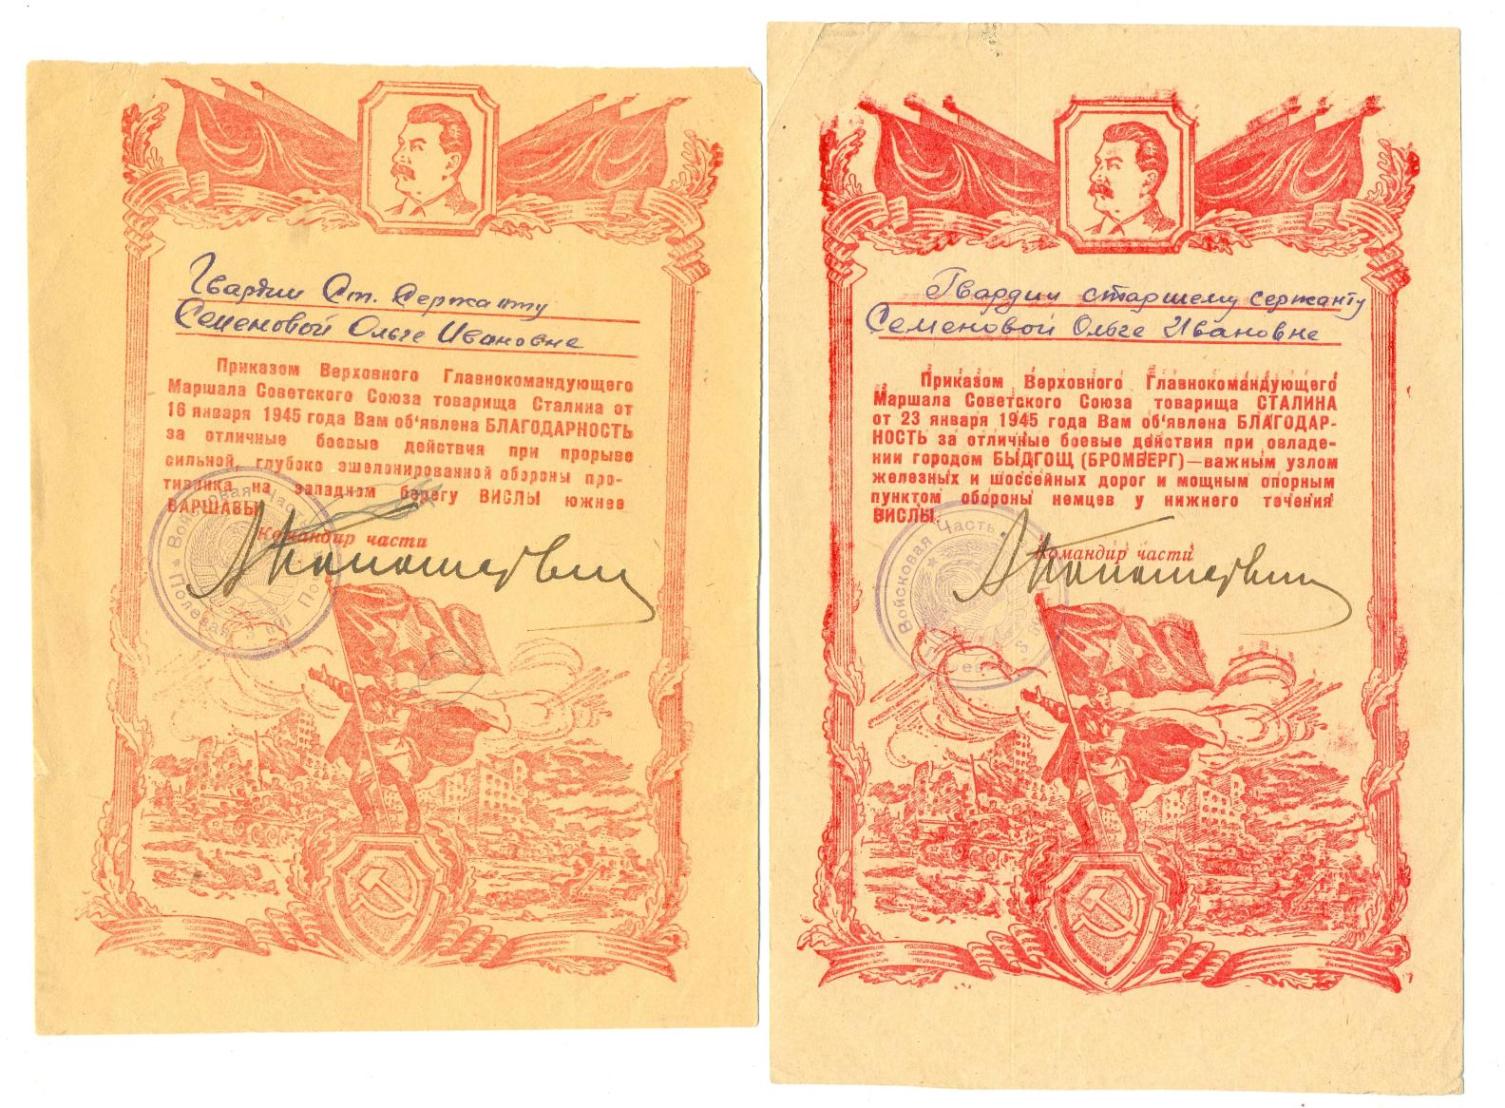 Гвардии Ст. Сержанту
Семеновой Ольге Ивановне
Приказом Верховного Главнокомандующего
Маршала Советского Союза товарища Сталина от
16 января 1945 года Вам об'явлена БЛАГОДАРНОСТЬ
за отличные боевые действия при прорыве
сильной, глубоко эшелонированной обороны про-
тивника на западном берегу ВИСЛЫ южнее
ВАРШАВЫ.
Командир части
Войсковая Часть
Полевая
Гвардии старшему сержанту
Семеновой Ольге Ивановне
Приказом Верховного Главнокомандующего
Маршала Советского Союза товарища СТАЛИНА
от 23 января 1945 года Вам об'явлена БЛАГОДАР-
НОСТЬ за отличные боевые действия при овладе-
нии городом БЫДГОЩ (БРОМБЕРГ)—важным узлом
железных и шоссейных дорог и мощным опорным
пунктом обороны немцев у нижнего течения
ВИСЛЫ.
Командир части
Войсковая Часть